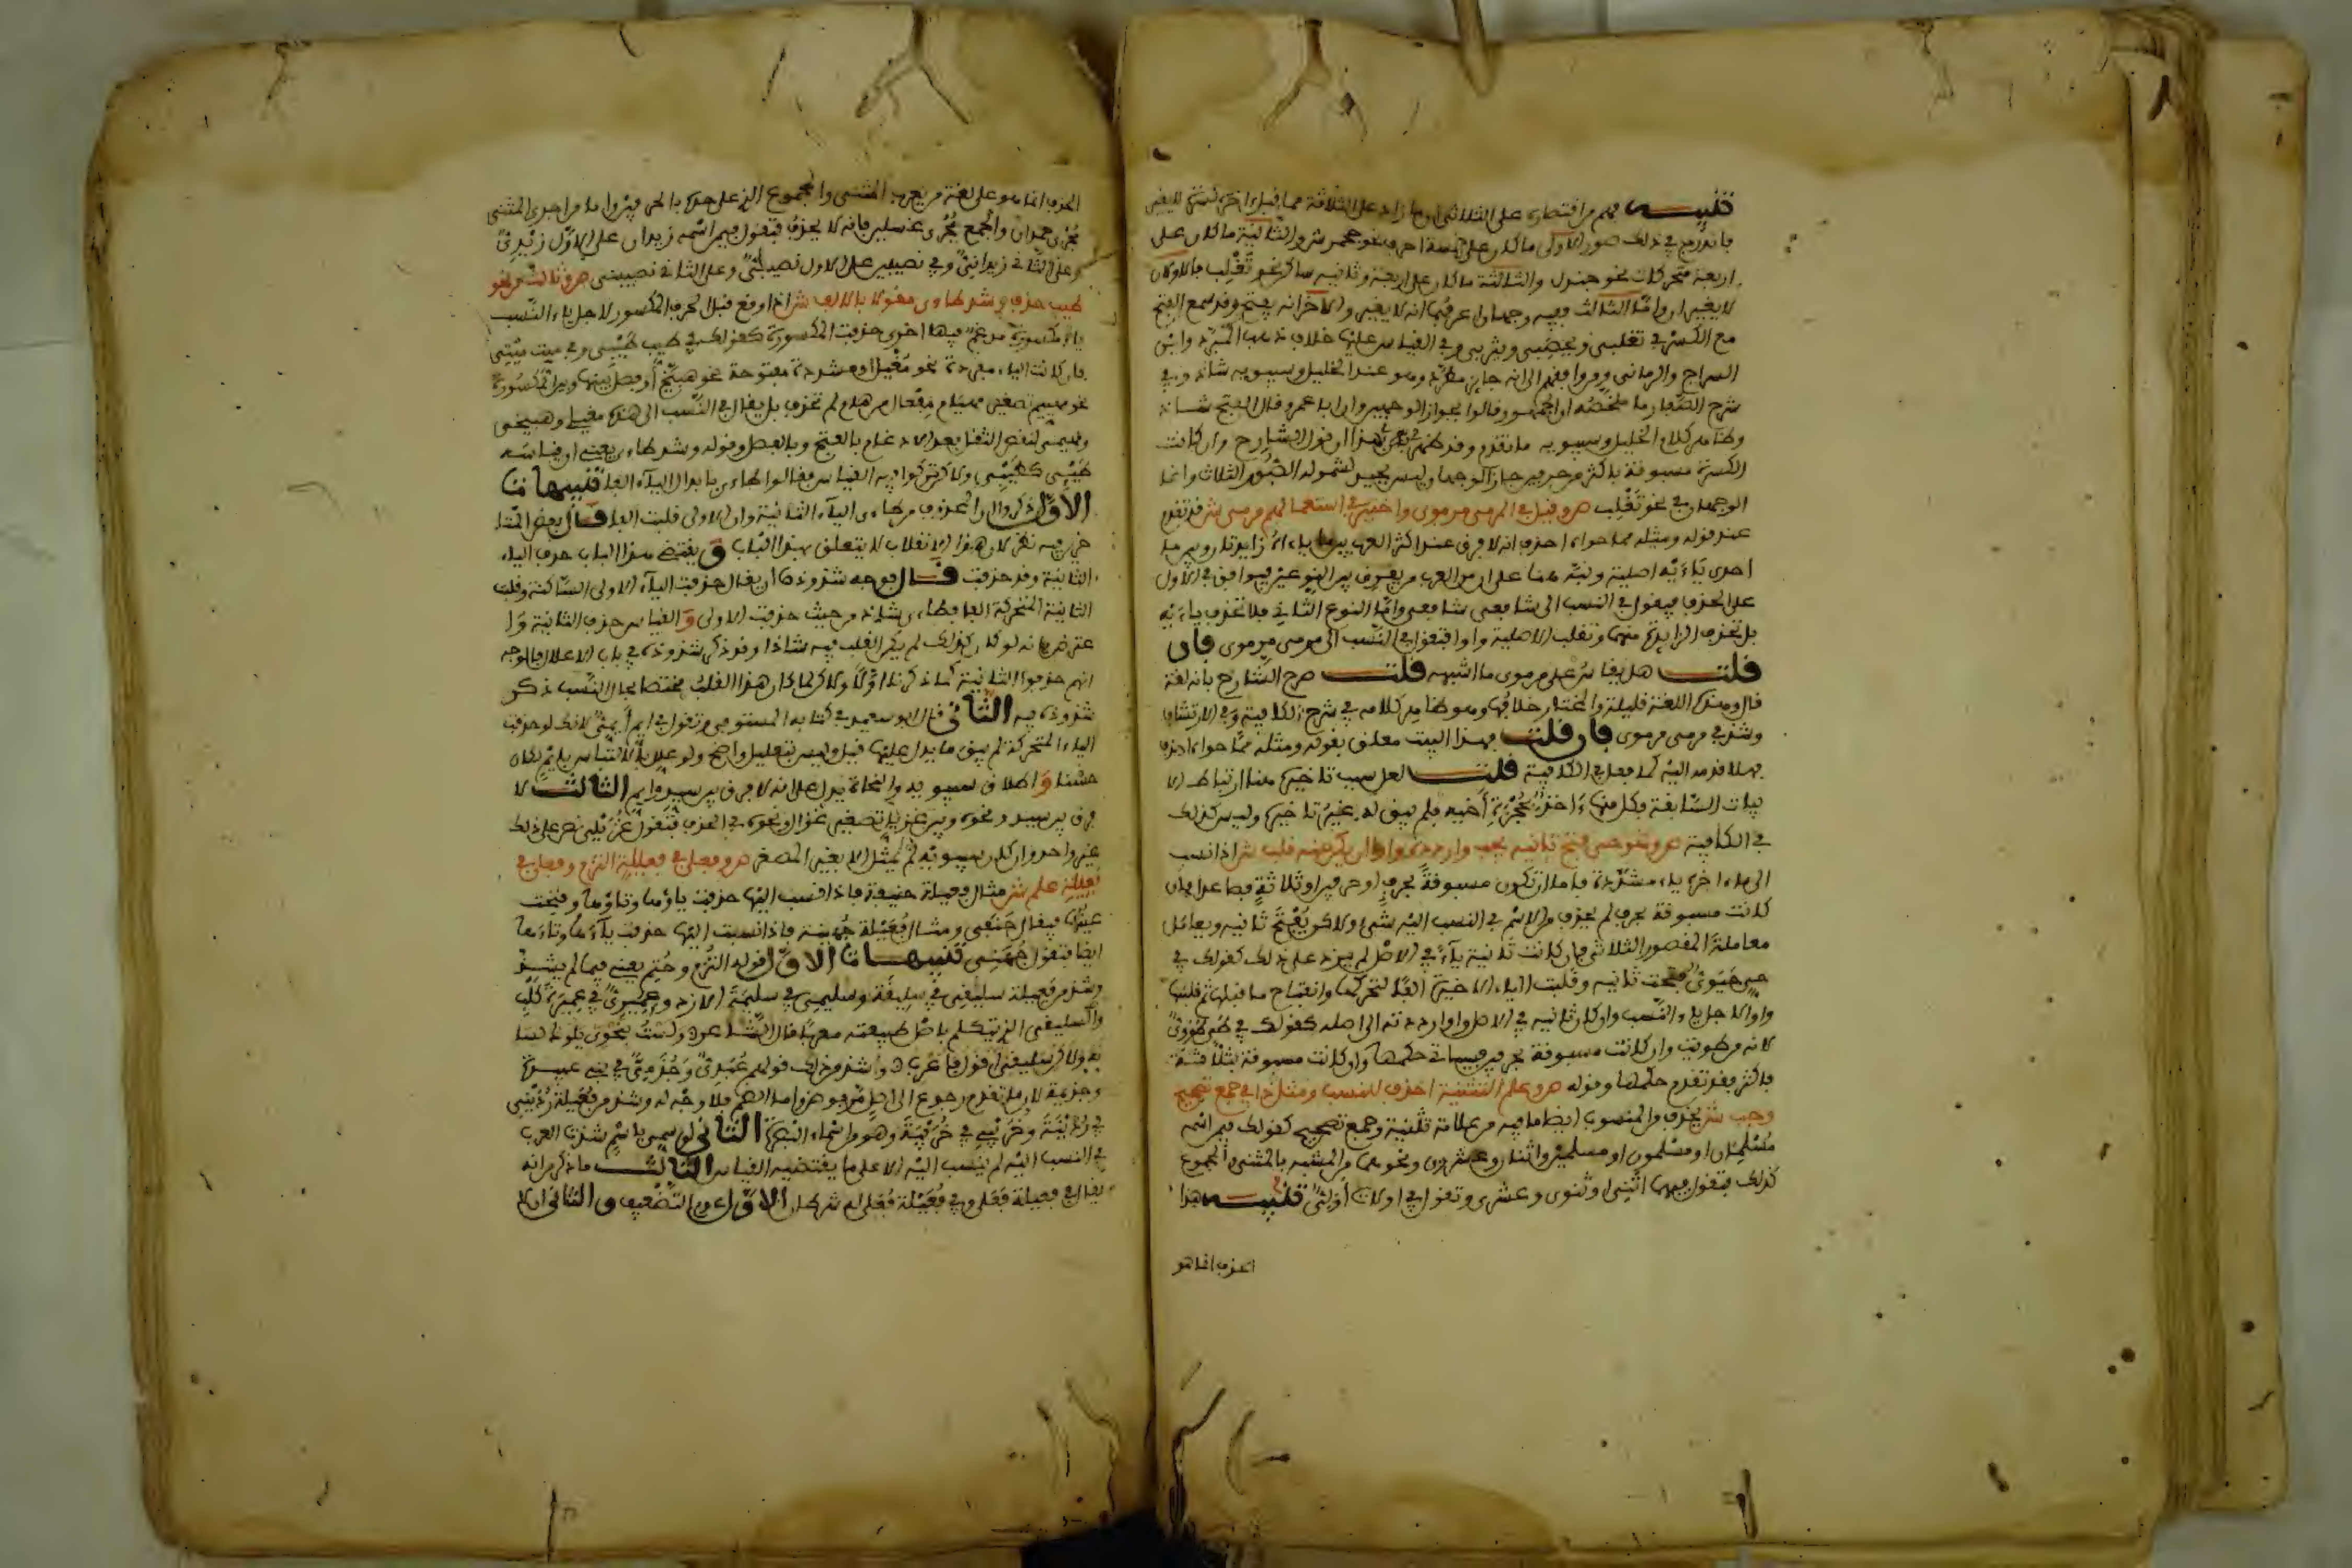 تنبيه فهم من اقتصاره على الثلاثي ان ما زاد على الثلاثة مما قبل اخره كسرة لا يغير
فاندرج في ذلك صور الاولى ما كان على خمسة احرف نحو جحمرش والثانية ما كان على
اربعة متحركات نحو جندل والثالثة ما كان على اربعة وثانيه ساكن نحو تغلب فالاولان
لا يغيران واما الثالث ففيه وجهان اعرفهما انه لا يغير والاخر انه يفتح وقد سمع الفتح
مع الكسر في تغلبي ويحصبي ويثربي وفي القياس عليها خلاف ذهب المبرد وابن
السراج والرماني ومن وافقهم الى انه جايز مطرد وهو عند الخليل وسيبويه شاذ وفي
شرح الصفار ما ملخصه ان الجمهور قالوا بجواز الوجهين وان ابا عمرو قال الفتح شاذ
وظاهر كلام الخليل وسيبويه ما تقدم وقد ظهر بهذا ان قول الشارح وان كانت
الكسرة مسبوقة باكثر من حرف جاز الوجهان ليس بجيد لشموله الصور الثلاث وانما
الوجهان في نحو تغلب ص وقيل في المرمي مرموي واختير في استعمالهم مرمي ش قد تقدم
عند قوله ومثله مما حواه احذف انه لا فرق عند اكثر العرب بين ما ياءاه زايدتان وبين ما
احدى ياءيه اصلية ونبه هنا على ان من العرب من يفرق بين النوعين فيوافق في الاول
على الحذف فيقول في النسب الى شافعي شافعي واما النوع الثاني فلا تحذف ياءيه
بل تحذف الزايدة منهما وتقلب الاصلية واوا فتقول في النسب الى مرمي مرموي فان
قلت هل يقاس على مرموي ما اشبهه قلت صرح الشارح بانه لغة
قال وهذه اللغة قليلة والمختار خلافها وهو ظاهر كلامه في شرح الكافية وفي الارتشاف
وشذ في مرمي مرموي فان قلت فهذا البيت معلق بقوله ومثله مما حواه احذف
فهلا قدمه اليه كما فعل في الكافية قلت لعل سبب تاخيره هنا ارتباط الا
بيات السابقة وكل منها ءاخذ بحجزة اخيه فلم يبق له غير تاخيره وليس كذلك
في الكافية ص ونحو حي فتح ثانيه يجب واردده واوا ان يكن عنه قلب ش اذا نسب
الى ما ءاخره ياء مشددة فاما ان تكون مسبوقة بحرف او حرفين او ثلاثة فصاعدا فان
كانت مسبوقة بحرف لم يحذف من الاسم في النسب اليه شيئ ولاكن يفتح ثانيه ويعامل
معاملة المقصور الثلاثي فان كانت ثانية ياء في الاصل لم يزد على ذلك كقولك في
حي حيوي فتحت ثانيه وقلبت الياء الاخيرة الفا لتحركها وانفتاح ما قبلها ثم قلبتها
واوا لاجل ياء النسب وان كان ثانيه في الاصل واوا رددته الى اصله كقولك في طي طووي
لانه من طويت وان كانت مسبوقة بحرفين فسياتي حكمها وان كانت مسبوقة بثلاثة
فاكثر فقد تقدم حكمها وقوله ص وعلم التثنية احذف للنسب ومثل ذا في جمع تصحيح
وجب ش يحذف من المنسوب ايضا ما فيه من علامة تثنية وجمع تصحيح كقولك فيمن اسمه
مسلمان او مسلمون او مسلمين واثنان وعشرون ونحوهما من المشبه بالمثنى والمجموع
كذلك فتقول فيهما اثني او ثنوي وعشري وتقول في اولات اولتي تنبيه هذا
الحذف انما هو
الحذف انما هو على لغة من يعرب المثنى والمجموع الذي على حده بالحروف واما من اجرى المثنى
مجرى حمدان والجمع مجرى غسلين فانه لا يحذف فتقول فيمن اسمه زيدان على الاول زيدي
وعلى الثاني زيداني وفي نصيبين على الاول نصيبي وعلى الثاني نصيبيني ص وثالث من نحو
طيب حذف وشذ طاءي مقولا بالالف ش اذا وقع قبل الحرف المكسور لاجل ياء النسب
ياء مكسورة مدغم فيها اخرى حذفت المكسورة كقولك في طيب طيبي وفي ميت ميتي
فان كانت الياء مفردة نحو مغيل او مشددة مفتوحة نحو هبيخ او فصل بينها وبين المكسور
نحو مهييم تصغير مهيام مفعال من هام لم تحذف بل يقال في النسب الى هذه مغيلي وهبيخي
ومهييمي لنقص الثقل بعدم الادغام بالفتح وبالفصل وقوله وشذ طاءي يعني ان قياسه
طيبي كطيبي ولاكن تركوا فيه القياس فقالوا طاءي بابدال الياء الفا تنبيهات
الاول ذكروا ان المحذوف من طاءي الياء الثانية وان الاولى قلبت الفا قال بعض المتا
خرين وفيه نظر لان هذا الانقلاب لا يتعلق بهذا الباب ويقتضي هذا الباب حذف الياء
الثانية وقد حذفت قال فوجه شذوذه ان يقال حذفت الياء الاولى الساكنة وقلبت
الثانية المتحركة الفا فطاءي شاذ من حيث حذفت الاولى والقياس حذف الثانية و
انهم حذفوا الثانية كما ذكرنا اولا ولاكن لما كان هذا القلب مختصا بحال النسب ذكر
شذوذه فيه الثاني قال ابو سعيد في كتابه المستوفى وتقول في ايم ايمي لانك لو حذفت
الياء المتحركة لم يبق ما يدل عليها قيل وليس بتعليل واضح ولو علل بالالتباس بايم لكان
حسنا واطلاق سيبويه والنحاة يدل على انه لا فرق بين سيد وايم الثالث لا
فرق بين سيد ونحوه وبين غزيل تصغير غزال ونحوه في الحذف فتقول غزيلي نص على ذلك
غير واحد وان كان سيبويه لم يمثل الا بغير المصغر ص وفعلي في فعيلة التزم وفعلي في
فعيلة علم ش مثال فعيلة حنيفة فاذا نسب اليها حذفت ياؤها وتاؤها وفتحت
عينها فيقال حنفي ومثال فعيلة جهينة فاذا نسبت اليها حذفت ياءها وتاءها
ايضا فتقول جهني تنبيهات الاول قوله التزم وحتم يعني فيما لم يشذ
وشذ من فعيلة سليقي في سليقة وسليمي في سليمة الازد وعميري في عميرة كلب
والسليقي الذي يتكلم باصل طبيعته معربا قال الشاعر ولست بنحوي يلوك لسا
نه ولاكن سليقي اقول فاعرب وشذ من ذلك قولهم عبدي وجذمي في بني عبيدة
وجذيمة
في ردينة وخريبي في خريبة وهو من اسماء البصرة الثاني لو سمي باسم شذت العرب
في النسب اليه لم ينسب اليه الا على ما يقتضيه القياس الثالث ما ذكر من انه
يقال في فعيلة فعلي وفي فعيلة فعلي له شرطان الاول عدم التضعيف والثاني ان لا